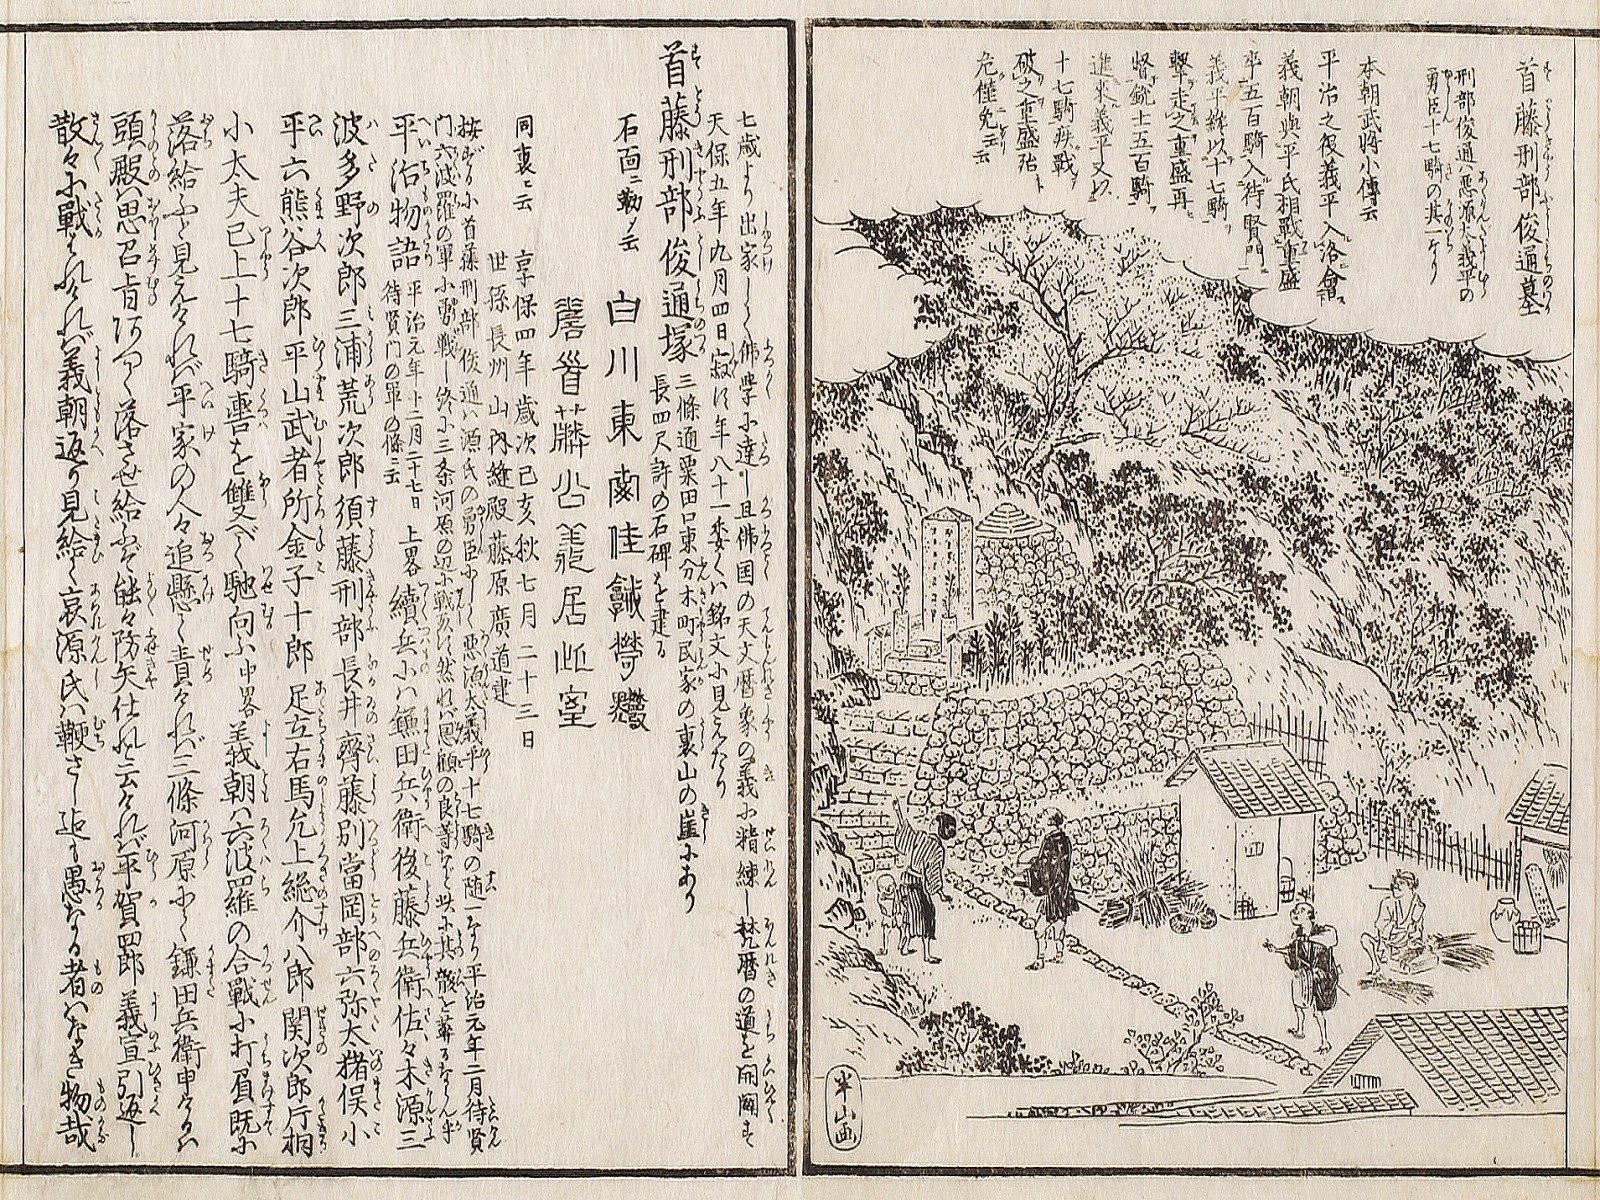 首藤刑部俊通墓
刑部俊通ハ悪源太義平の
勇臣十七騎の其一なり
本朝武将小傳云
平治之役義平入洛會
義朝與平氏相戰重盛
率五百騎入待賢門
義平縦以十七騎
撃走之重盛再
督鋭士五百騎
進來義平又以
十七騎疾戰
破之重盛殆
危僅免云云
半山画
七歳より出家して佛学に達し且佛国の天文暦象の義に精練し梵暦の道を開闢す
天保五年九月四日寂に年八十一委くハ銘文に見えたり
首藤刑部俊通塚 三條通粟田口東分木町民家の裏山の崖にあり
長四尺許の石碑を建る
石面ニ勒シ云
白川東
居
同裏ニ云 享保四年歳次己亥秋七月二十三日
世孫長州山内縫殿藤原廣道建
按ずるに首藤刑部俊通ハ源氏の勇臣にして悪源太義平十七騎の随一なり平治元年二月待賢
門六波羅の軍に勇戦し終に三条河原の辺に戦死に然れバ恩顧の良等など此に其骸を葬るならん乎
平治物語 待賢門の軍の條ニ云 平治元年十二月二十七日 上畧 續兵にハ鎌田兵衛後藤兵衛佐々木源三
波多野次郎三浦荒次郎須藤刑部長井齊藤別當岡部六弥太猪俣小
平六熊谷次郎平山武者所金子十郎足立右馬允上総介八郎関次郎片桐
小太夫已上十七騎轡を雙べて馳向ふ 中畧 義朝ハ六波羅の合戰に打負既に
落給ふと見えけれバ平家の人々追懸て責けれバ三條河原にて鎌田兵衛申けるハ
頭殿ハ思召旨阿りて落させ給ふぞ能々防矢仕れと云けれバ平賀四郎義宣引返し
散々に戰ハれけれバ義朝返り見給て哀源氏ハ鞭さし迄も愚なる者ハなき物哉